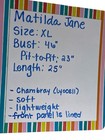 Matilda Jane
Size: XL
Bust: 46"
Pit-to-Pit: 23"
Length: 25"
- Chambray (lyocell)
- soft
- lightweight
- front panel is lined